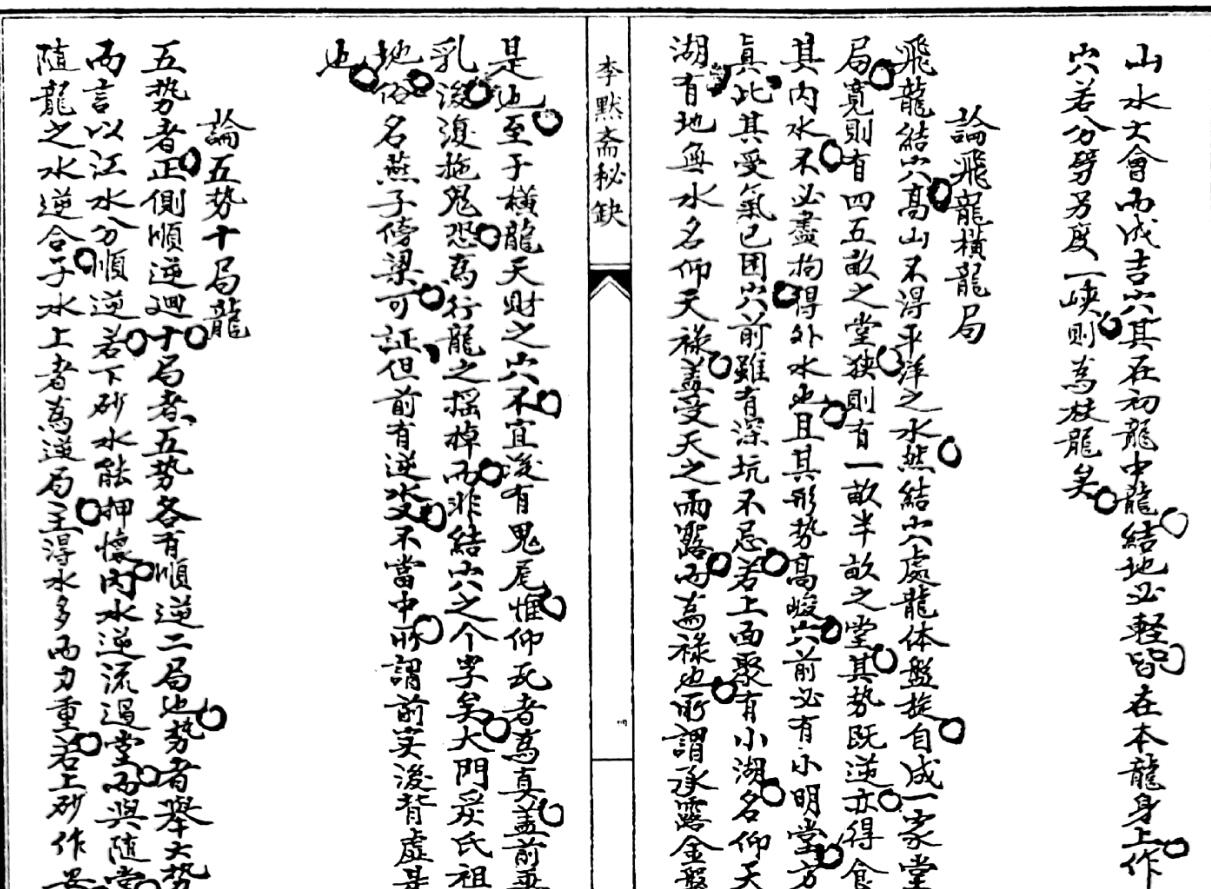 山水大會而成吉穴其在初龍中龍結地必輕皆在本龍身上作
穴若分劈另度一峽則為枝龍矣
論飛龍橫龍局
飛龍結穴高山不得平洋之水然結穴處龍体盤旋自成一家堂
局寬則有四五畝之堂狹則有一畝半畝之堂其势既逆亦得食
其內水不必盡拘得外水也且其形勢高峻穴前必有小明堂方
真此其受氣已困穴前雖有深坑不忌若上面聚有小湖名仰天
湖有地無水名仰天祿盖受天之雨露而為祿也所謂承露金盤
李默斋秘缺
是也至于橫龍天財之穴不宜後有鬼尾惟仰瓦者為真盖前垂
乳後復拖鬼恐為行龍之摇棹而非結穴之个字矣大門炭氏祖
地俗名燕子傍梁可証但前有逆水又不當中所謂前实後背虛是
也
論五势十局龍
五势者正側順逆迴十局者五势各有順逆二局也势者舉大势
而言以江水分順逆若下砂水能押懷內水逆流過堂而與隨堂
隨龍之水逆合于水上者為逆局主得水多而力重若上砂作